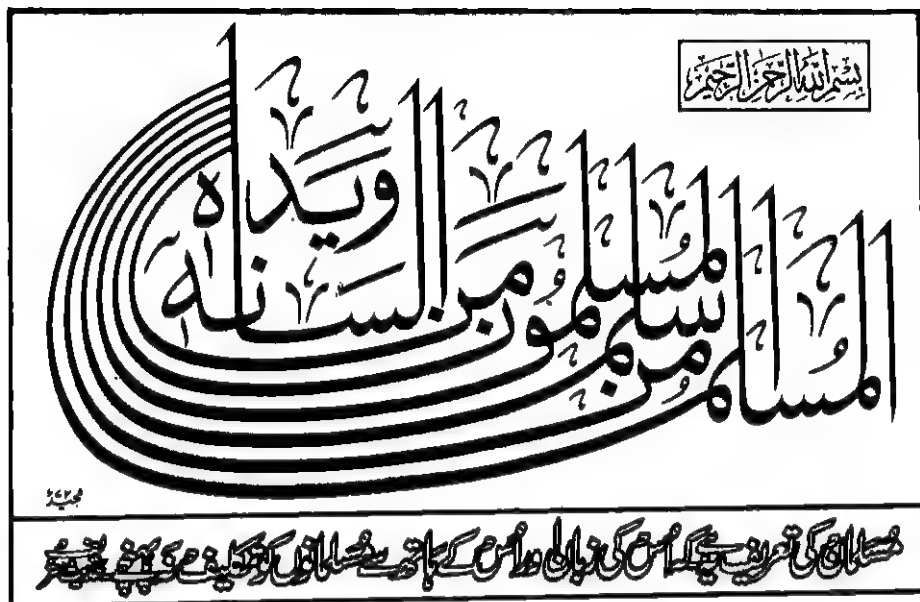 بِسْمِ اللهِ الرَّحْمٰنِ الرَّحِيْمِ
المسلم من سلم المسلمون من لسانه ويده
مسلمان کی تعریف یہ ہے کہ اُس کی زبان اور اُس کے ہاتھ سے مسلمانوں کو تکلیف نہ پہنچے